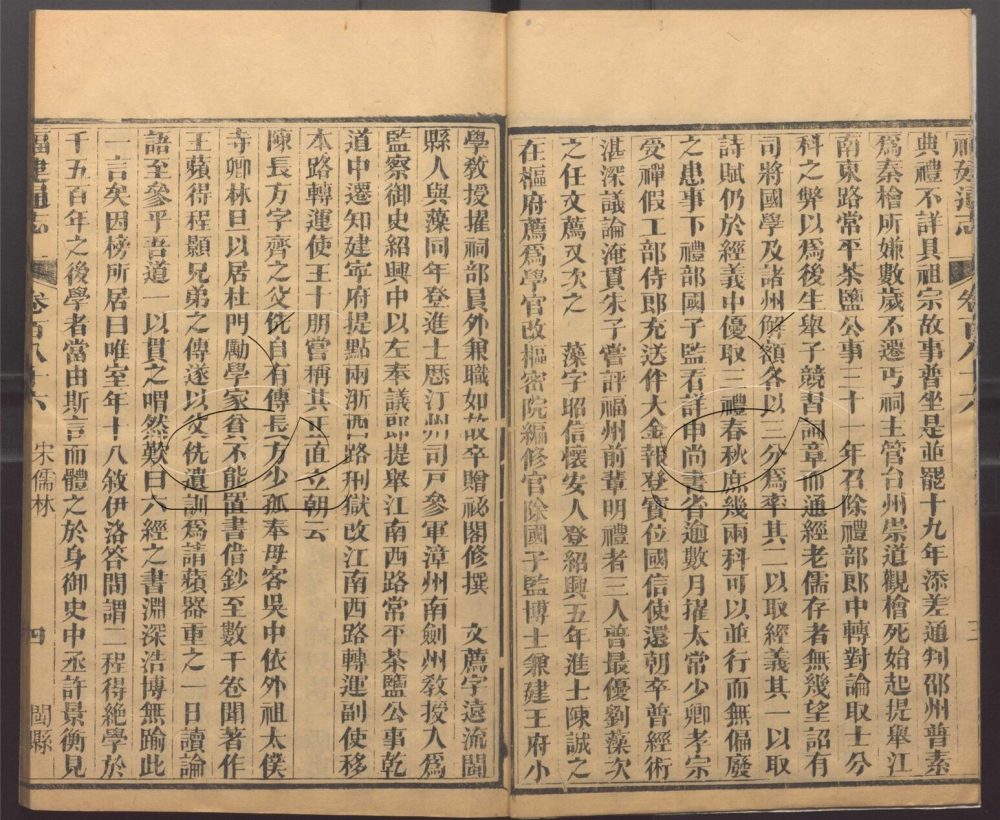 福建通志
卷百八十六
三
典禮不詳具祖宗故事普坐是並罷十九年添差通判邵州普素
爲秦檜所嫌數歲不遷丐祠主管台州崇道觀檜死始起提舉江
南東路常平茶鹽公事三十一年召除禮部郎中轉對論取士分
科之弊以爲後生舉子競習詞章而通經老儒存者無幾望詔有
司將國學及諸州解額各以三分爲率其二以取經義其一以取
詩賦仍於經義中優取二禮春秋庶幾兩科可以並行而無偏廢
之患事下禮部國子監看詳申尚書省逾數月擢太常少卿孝宗
受禪假工部侍郎充送伴大金報登寶位國信使還朝卒普經術
湛深議論淹貫朱子嘗評福州前輩明禮者三人普最優劉藻次
之任文薦又次之　藻字昭信懷安人登紹興五年進士陳誠之
在樞府薦爲學官改樞密院編修官除國子監博士兼建王府小
學教授擢祠部員外兼職如故卒贈祕閣修撰　文薦字遠流閩
縣人與藻同年登進士歷汀州司戶參軍漳州南劍州教授入爲
監察御史紹興中以左奉議郎提舉江南西路常平茶鹽公事乾
道中遷知建寧府提點兩浙西路刑獄改江南西路轉運副使移
本路轉運使王十朋嘗稱其正直立朝云
陳長方字齊之父侁自有傳長方少孤奉母客吳中依外祖太僕
寺卿林旦以居杜門勵學家貧不能置書借鈔至數千卷聞著作
王蘋得程顥兄弟之傳遂以父侁遺訓爲請蘋器重之一日讀論
語至參乎吾道一以貫之喟然歎曰六經之書淵深浩博無踰此
一言矣因榜所居曰唯室年十八敘伊洛答問謂二程得絕學於
千五百年之後學者當由斯言而體之於身御史中丞許景衡見
福建通志
卷百八十六
宋儒林
四
閩縣